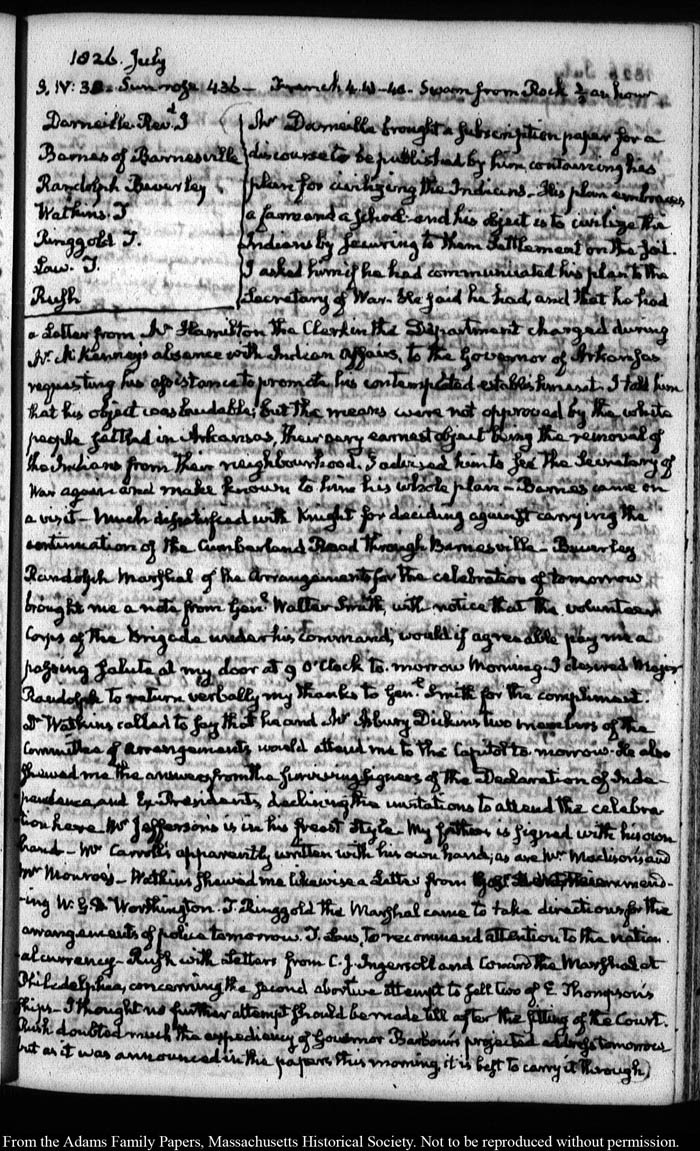 1826. July
3. IV: 30. Sun rose 4.36 - French 4.43 - 40. Swam from Rock ½ an hour
Darneille. Revd. I
Barnes of Barnesville
Randolph Beverley
Watkins. T
Ringgold T.
Law. T.
Rush
Mr Darneille brought a subscription paper for a
discourse to be published by him containing his
plan for civilizing the Indians - His plan embraces
a farm and a school - and his object is to civilize the
Indians by securing to them Settlement on the soil.
I asked him if he had communicated his plan to the
Secretary of War. He said he had, and that he had
a Letter from Mr Hamilton the Clerk in the Department charged during
Mr. McKenney's absence with Indian Affairs, to the Governor of Arkansas
requesting his assistance to promote his contemplated establishment. I told him
that his object was laudable; but the means were not approved by the white
people settled in Arkansas, their very earnest object being the removal of
the Indians from their neighbourhood. I advised him to see the Secretary of
War again and make known to him his whole plan - Barnes came on
a visit - Much dissatisfied with Knight for deciding against carrying the
continuation of the Cumberland Road through Barnesville - Beverley
Randolph Marshal of the Arrangements for the celebration of tomorrow
brought me a note from Genl. Walter Smith, with notice that the volunteer
Corps of the Brigade under his command, would if agreeable pay me a
passing salute at my door at 9 O'Clock to-morrow Morning. I desired Major
Randolph to return verbally my thanks to Genl. Smith for the compliment.
Dr Watkins called to say that he and Mr Asbury Dickins two members of the
Committee of Arrangements would attend me to the Capitol to-morrow. He also
shewed me the answers from the surviving signers of the Declaration of Inde-
pendence, and Ex-Presidents, declining the invitations to attend the celebra-
tion here. Mr Jefferson's is in his freest style. My father's is signed with his own
hand - Mr Carroll's apparently written with his own hand; as are Mr Madison's and
Mr Monroe's - Watkins shewed me likewise a Letter from recommend-
ing W. G. D. Worthington. T. Ringgold the Marshal came to take directions for the
arrangements of police tomorrow. T. Law, to recommend attention to the nation-
al currency - Rush with Letters from C. J. Ingersoll and Conard the Marshal at
Philadelphia, concerning the second abortive attempt to sell two of E. Thompson's
ships - I thought no further attempt should be made till after the sitting of the Court.
Rush doubted much the expediency of Governor Barbour's projected address tomorrow
but as it was announced in the papers this morning, it is best to carry it through,)
From the Adams Family Papers, Massachusetts Historical Society. Not to be reproduced without permission.